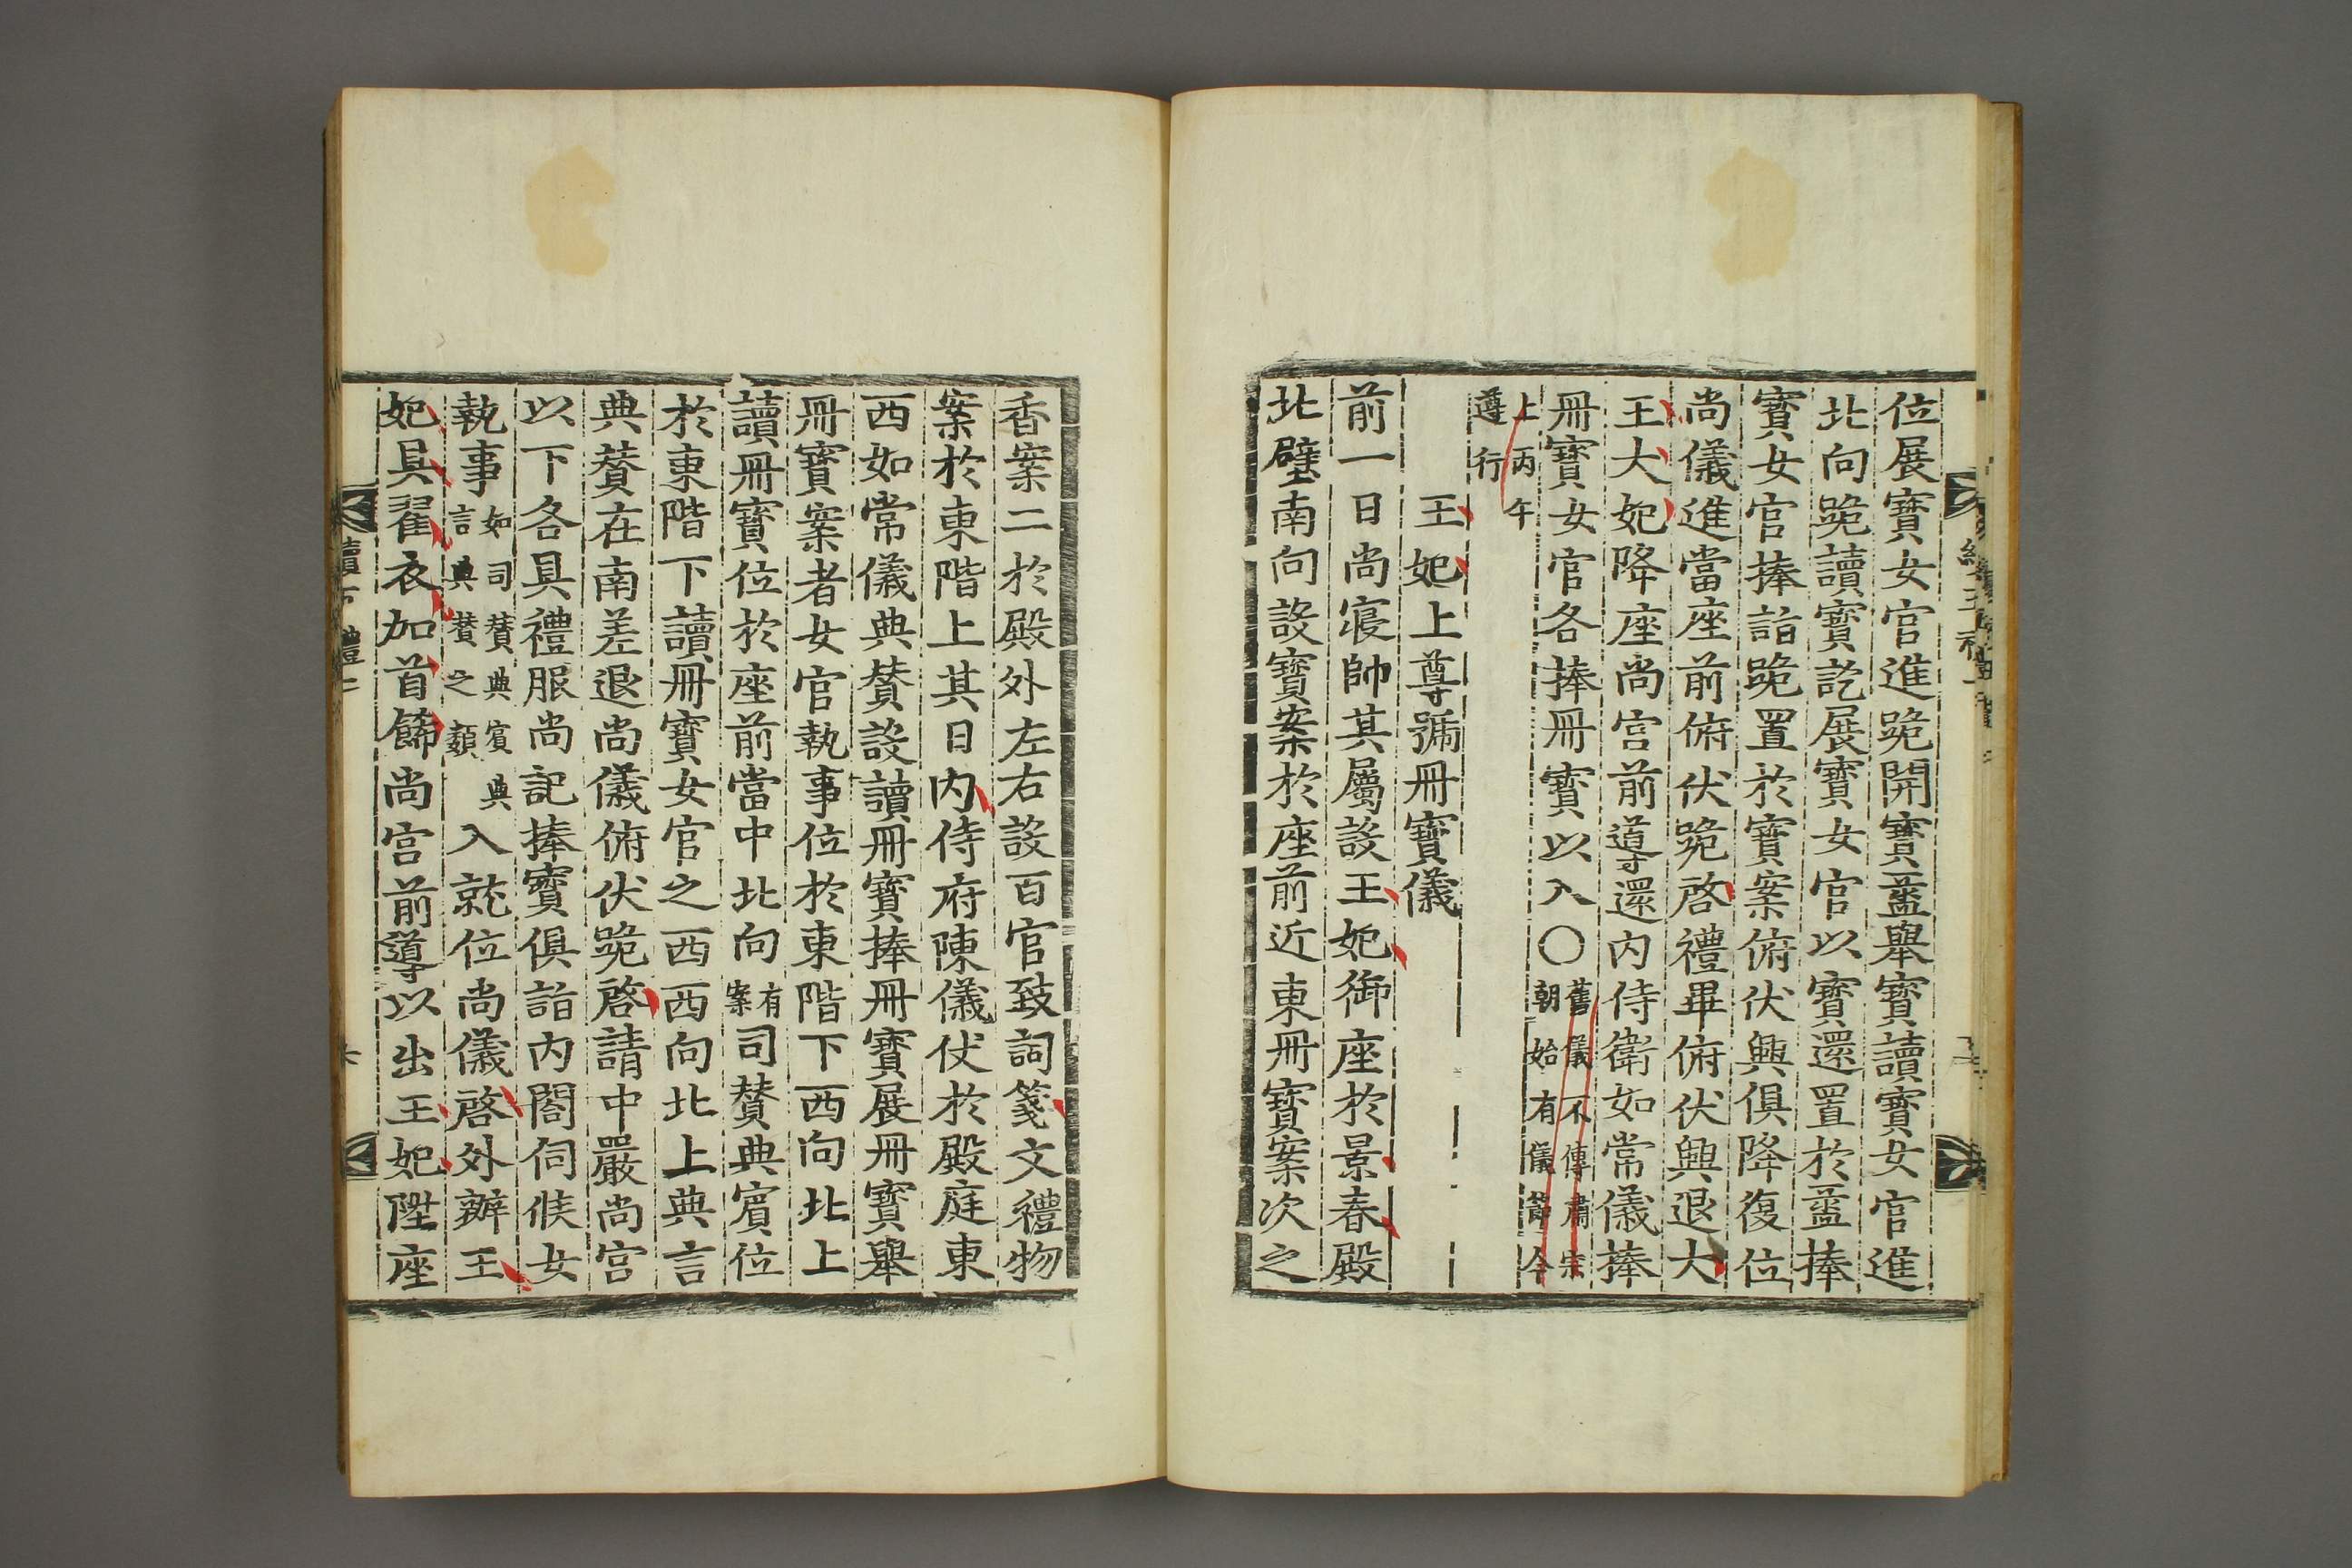 位展寶女官進跪開寶盝舉寶讀寶女官進
北向跪讀寶訖展寶女官以寶還置於盝捧
寶女官捧詣跪置於寶案俯伏興俱降復位
尚儀進當座前俯伏跪啓禮畢俯伏興退大
王大妃降座尚宮前導還內侍衛如常儀捧
冊寶女官各捧冊寶以入〇舊儀不傳肅宗
朝始有儀節今
上丙午
遵行
王妃上尊號冊寶儀
前一日尚寢帥其屬設王妃御座於景春殿
北壁南向設寶案於座前近東冊寶案次之
香案二於殿外左右設百官致詞箋文禮物
案於東階上其日內侍府陳儀仗於殿庭東
西如常儀典贊設讀冊寶捧冊寶展冊寶舉
冊寶案者女官執事位於東階下西向北上
讀冊寶位於座前當中北向有
案司贊典賓位
於東階下讀冊寶女官之西西向北上典言
典贊在南差退尚儀俯伏跪啓請中嚴尚宮
以下各具禮服尚記捧寶俱詣內閤伺候女
執事如司贊典賓典
言典贊之類入就位尚儀啓外辦王
妃具翟衣加首飾尚宮前導以出王妃陞座